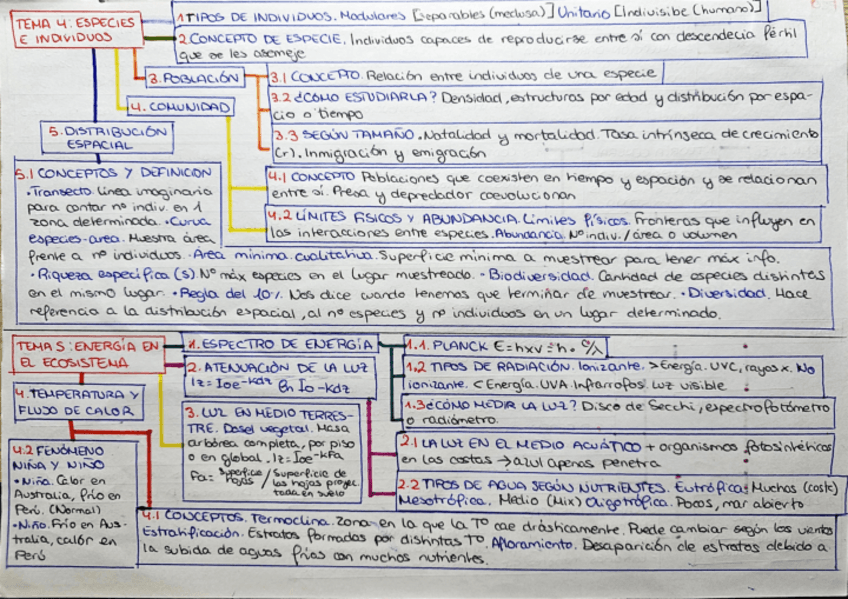 TEMA 4: ESPECIES
E INDIVIDUOS
1 TIPOS DE INDIVIDUOS. Modulares [separables (medusa)] Unitario [Indivisible (humano)]
2 CONCEPTO DE ESPECIE. Individuos capaces de reproducirse entre sí con descendecia fértil
que se les asemeje
3. POBLACIÓN
3.1 CONCEPTO. Relación entre individuos de una especie
3.2 ¿CÓMO ESTUDIARLA? Densidad, estructuras por edad y distribución por espa-
cio o tiempo
3.3 SEGÚN TAMAÑO. Natalidad y mortalidad. Tasa intrínseca de crecimiento
(r). Inmigración y emigración
4. COMUNIDAD
4.1 CONCEPTO Poblaciones que coexisten en tiempo y espación y se relacionan
entre sí. Presa y depredador coevolucionan
4.2 LÍMITES FÍSICOS Y ABUNDANCIA. Límites físicos. Fronteras que influyen en
las interacciones entre especies. Abundancia. Nº indiv. / área o volumen
5. DISTRIBUCIÓN
ESPACIAL
5.1 CONCEPTOS Y DEFINICIÓN
• Transecto. Línea imaginaria
para contar nº indiv. en 1
zona determinada. • Curva
especies-area. Muestra área
frente a nº individuos. • Area mínima. cualitativa. Superficie mínima a muestrear para tener máx info.
• Riqueza específica (S). Nº máx especies en el lugar muestreado. • Biodiversidad. Cantidad de especies distintas
en el mismo lugar. • Regla del 10%. Nos dice cuando tenemos que terminar de muestrear. • Diversidad. Hace
referencia a la distribución espacial, al nº especies y nº individuos en un lugar determinado.
TEMA 5: ENERGÍA EN
EL ECOSISTEMA
1. ESPECTRO DE ENERGÍA
1.1. PLANCK E = h x v = h · c/λ
1.2 TIPOS DE RADIACIÓN. Ionizante. > Energía. UVC, rayos x. No
ionizante. < Energía. UVA. Infrarrojos. luz visible
1.3 ¿CÓMO MEDIR LA LUZ? Disco de Secchi, espectrofotómetro
o radiómetro.
2. ATENUACIÓN DE LA LUZ
Iz = Ioe^-kdz ln Io-kdz
2.1 LA LUZ EN EL MEDIO ACUÁTICO + organismos fotosintéticos
en las costas → azul apenas penetra
2.2 TIPOS DE AGUA SEGÚN NUTRIENTES. Eutrófica: Muchos (coste)
Mesotrófica. Medio (Mix) Oligotrófica. Pocos, mar abierto
3. LUZ EN MEDIO TERRES-
TRE. Dosel vegetal. Masa
arbórea completa, por piso
o en global. Iz = Ioe^-kFa
Fa = superficie hojas / Superficie de
las hojas proyec
tada en suelo
4. TEMPERATURA Y
FLUJO DE CALOR
4.2 FENÓMENO
NIÑA Y NIÑO
• Niña. Calor en
Australia, frío en
Perú. (Normal)
• Niño. Frío en Aus-
tralia, calor en
Perú
4.1 CONCEPTOS. Termoclina. Zona en la que la Tº cae drásticamente. Puede cambiar según los vientos
Estratificación. Estratos formados por distintas Tº. Afloramiento. Desaparición de estratos debido a
la subida de aguas frías con muchos nutrientes.